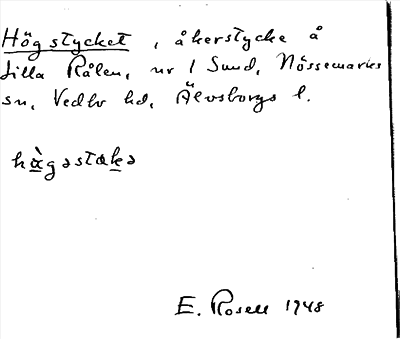 Högstycket, åkerstycke å
Lilla Rålen, nr 1 Sund, Nössemarks
sn, Vedbo hd, Älvsborgs l.
hàgəstəkə
E. Rosell 1948